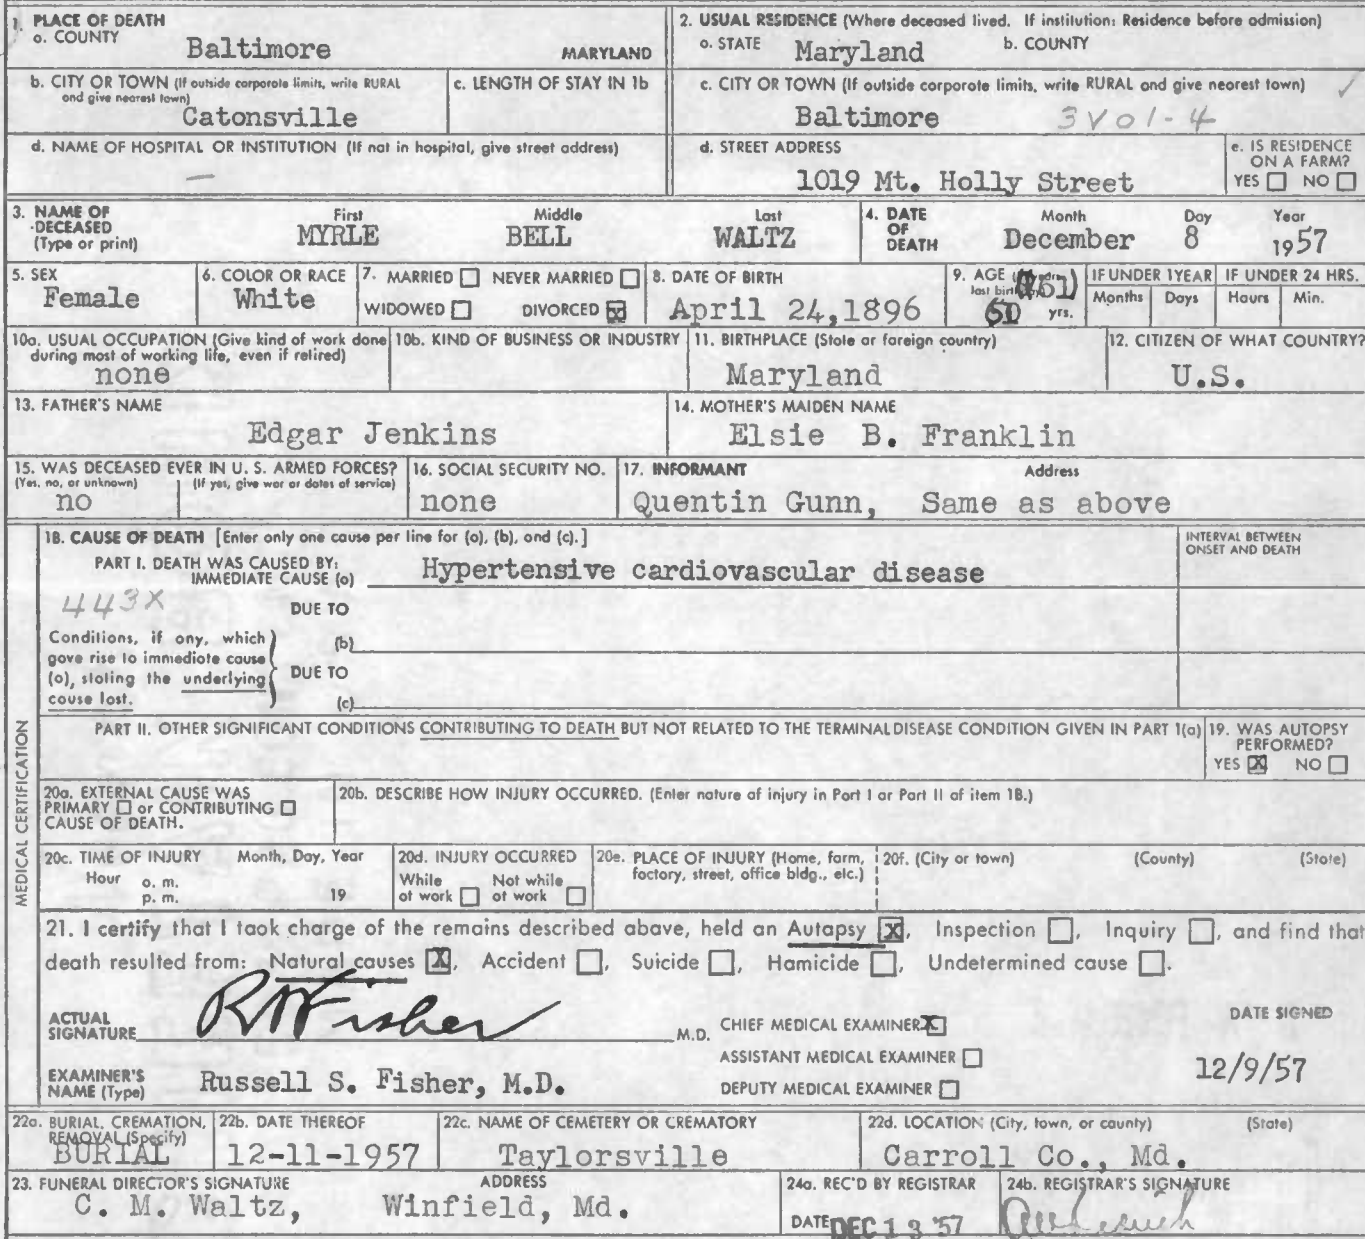 1. PLACE OF DEATH
a. COUNTY Baltimore MARYLAND
2. USUAL RESIDENCE (Where deceased lived. If institution: Residence before admission)
a. STATE Maryland b. COUNTY
b. CITY OR TOWN (If outside corporate limits, write RURAL and give nearest town) Catonsville
c. LENGTH OF STAY IN 1b
c. CITY OR TOWN (If outside corporate limits, write RURAL and give nearest town)
Baltimore 3V01-4
d. NAME OF HOSPITAL OR INSTITUTION (If not in hospital, give street address)
—
d. STREET ADDRESS
1019 Mt. Holly Street
e. IS RESIDENCE ON A FARM?
YES ☐ NO ☐
3. NAME OF DECEASED (Type or print)
First Middle Last
MYRLE BELL WALTZ
4. DATE OF DEATH
Month Day Year
December 8 1957
5. SEX
Female
6. COLOR OR RACE
White
7. MARRIED ☐ NEVER MARRIED ☐
WIDOWED ☐ DIVORCED ☒
8. DATE OF BIRTH
April 24,1896
9. AGE
last
(61)
yrs.
IF UNDER 1 YEAR
Months Days
IF UNDER 24 HRS.
Hours Min.
10a. USUAL OCCUPATION (Give kind of work done during most of working life, even if retired)
none
10b. KIND OF BUSINESS OR INDUSTRY
11. BIRTHPLACE (State or foreign country)
Maryland
12. CITIZEN OF WHAT COUNTRY?
U.S.
13. FATHER'S NAME
Edgar Jenkins
14. MOTHER'S MAIDEN NAME
Elsie B. Franklin
15. WAS DECEASED EVER IN U. S. ARMED FORCES?
(Yes, no, or unknown) (If yes, give war or dates of service)
no
16. SOCIAL SECURITY NO.
none
17. INFORMANT Address
Quentin Gunn, Same as above
MEDICAL CERTIFICATION
18. CAUSE OF DEATH [Enter only one cause per line for (a), (b), and (c).]
PART I. DEATH WAS CAUSED BY:
IMMEDIATE CAUSE (a) Hypertensive cardiovascular disease
INTERVAL BETWEEN ONSET AND DEATH
443X
DUE TO
Conditions, if any, which gave rise to immediate cause (a), stating the underlying cause last.
(b)
DUE TO
(c)
PART II. OTHER SIGNIFICANT CONDITIONS CONTRIBUTING TO DEATH BUT NOT RELATED TO THE TERMINAL DISEASE CONDITION GIVEN IN PART 1(a)
19. WAS AUTOPSY PERFORMED?
YES ☒ NO ☐
20a. EXTERNAL CAUSE WAS
PRIMARY ☐ or CONTRIBUTING ☐
CAUSE OF DEATH.
20b. DESCRIBE HOW INJURY OCCURRED. (Enter nature of injury in Part I or Part II of item 18.)
20c. TIME OF INJURY Month, Day, Year
Hour a. m.
p. m. 19
20d. INJURY OCCURRED
While at work ☐ Not while at work ☐
20e. PLACE OF INJURY (Home, farm, factory, street, office bldg., etc.)
20f. (City or town) (County) (State)
21. I certify that I took charge of the remains described above, held an Autopsy ☒, Inspection ☐, Inquiry ☐, and find that
death resulted from: Natural causes ☒, Accident ☐, Suicide ☐, Homicide ☐, Undetermined cause ☐.
ACTUAL SIGNATURE RSFisher M.D.
CHIEF MEDICAL EXAMINER ☒
ASSISTANT MEDICAL EXAMINER ☐
DEPUTY MEDICAL EXAMINER ☐
DATE SIGNED
12/9/57
EXAMINER'S NAME (Type) Russell S. Fisher, M.D.
22a. BURIAL, CREMATION, REMOVAL (Specify)
BURIAL
22b. DATE THEREOF
12-11-1957
22c. NAME OF CEMETERY OR CREMATORY
Taylorsville
22d. LOCATION (City, town, or county) (State)
Carroll Co., Md.
23. FUNERAL DIRECTOR'S SIGNATURE ADDRESS
C. M. Waltz, Winfield, Md.
24a. REC'D BY REGISTRAR
DATE DEC 13 '57
24b. REGISTRAR'S SIGNATURE